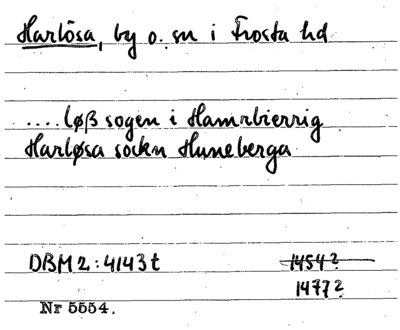 Harlösa, by o. sn i Frosta hd
.... løß sogen i Hamrbierrig
Harløsa sockn Huneberga
DBM 2:4143t 1454?
1477?
Nr 5554.